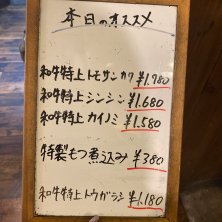 本日のオススメ
和牛特上トモサンカク ¥1.780
和牛特上シンシン ¥1.680
和牛特上カイノミ ¥1.580
特製もつ煮込み ¥380
和牛特上トウガラシ ¥1.180